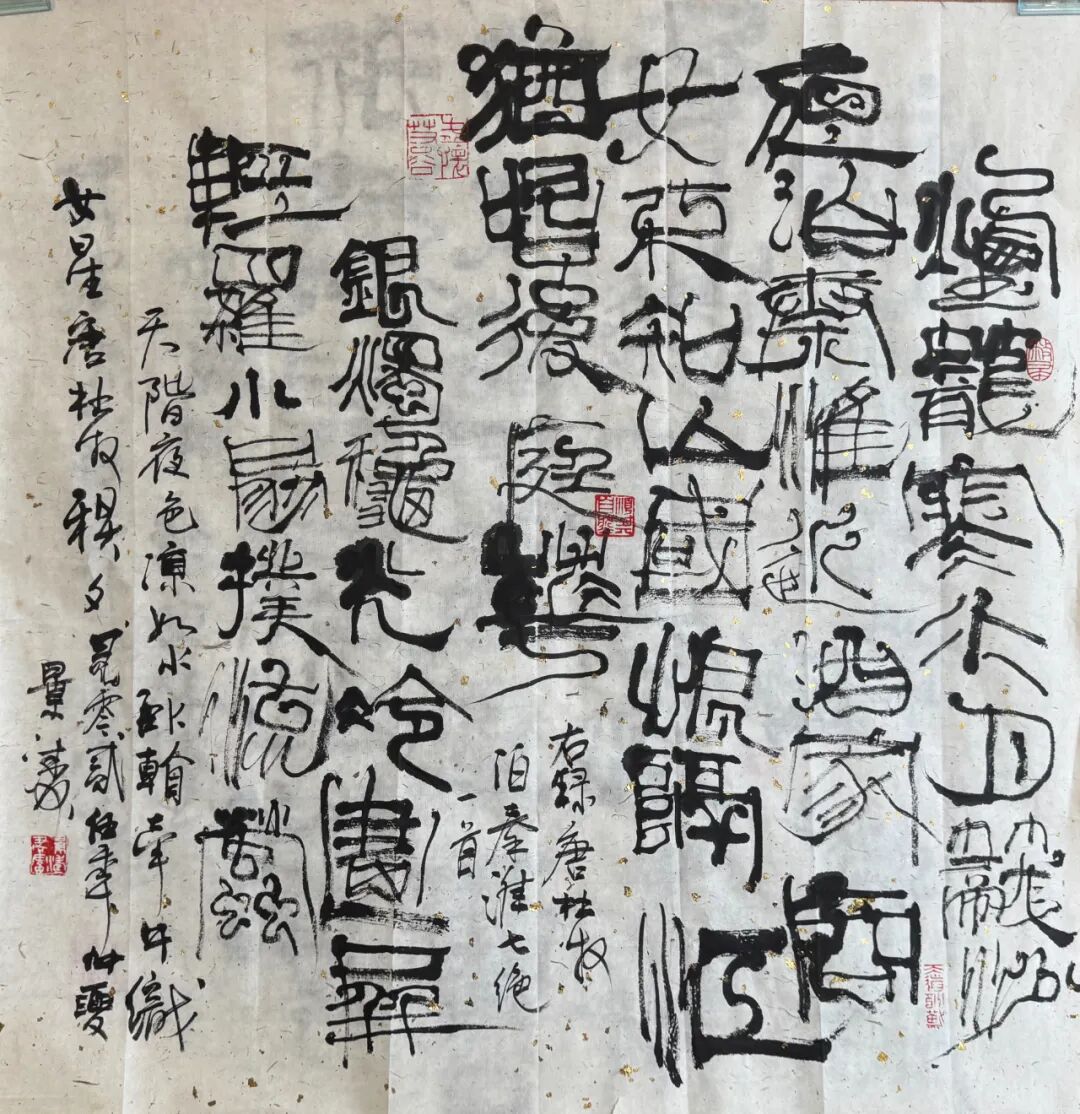 煙籠寒水月籠沙
夜泊秦淮近酒家商
女不知亡國恨隔江
猶唱後庭花
右録唐杜牧
泊秦淮七絕
一首
銀燭秋光冷畫屏
輕羅小扇撲流螢
天階夜色涼如水臥看牽牛織
女星唐杜牧秋夕貳零貳伍年仲夏